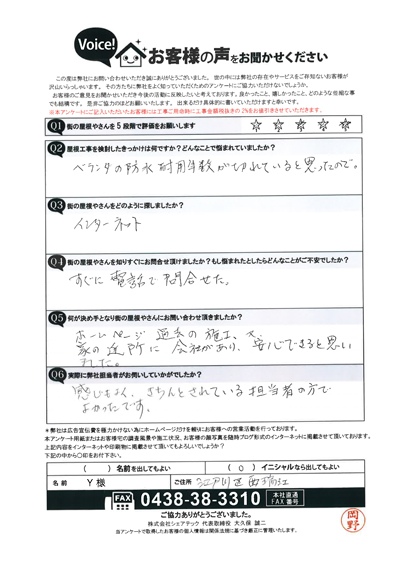 Voice!
お客様の声をお聞かせください
この度は弊社にお問い合わせいただき誠にありがとうございました。世の中には弊社の存在やサービスをご存知ないお客様が
沢山いらっしゃいます。その方たちに弊社をよく知っていただくためのアンケートにご協力いただけないでしょうか。
お客様のご意見をお聞かせいただき今後の活動に反映したいと考えております。良かったこと、嬉しかったこと、どのような些細な事
でも結構です。是非ご協力のほどお願いいたします。出来るだけ具体的に書いていただけますと幸いです。
※本アンケートご記入いただいたお客様には工事ご用命時に工事金額税抜きの2%をお値引きさせていただきます。
Q1 街の屋根やさんを5段階で評価をお願いします
Q2 屋根工事を検討したきっかけは何ですか?どんなことで悩まれていましたか?
ベランダの防水耐用年数が切れていると思ったので。
Q3 街の屋根やさんをどのように探しましたか?
インターネット
Q4 街の屋根やさんを知りすぐにお問合せ頂けましたか?もし悩まれたとしたらどんなことがご不安でしたか?
すぐに電話で問合せた。
Q5 何が決め手となり街の屋根やさんにお問い合わせ頂きましたか?
ホームページ 過去の施工
家の近所に会社があり、安心できると思い
ました。
Q6 実際に弊社担当者がお伺いしていかがでしたか?
感じもよく、きちんとされている担当者の方で
よかったです。
※弊社は広告宣伝費を極力かけない為にホームページだけを頼りにお客様への営業活動を行っております。
本アンケート用紙またはお客様宅の調査風景や施工状況、お客様の顔写真を随時ブログ形式のインターネットに掲載させて頂いております。
上記内容をインターネットや印刷物に掲載させて頂いてもよろしいでしょうか?
下記の中から〇印をお付け下さい。
( )名前を出してもよい (〇)イニシャルなら出してもよい
名前 Y様 ご住所 江戸川区西瑞江
FAX 0438-38-3310 本社直通 FAX番号
ご協力ありがとうございました。
株式会社シェアテック 代表取締役 大久保 誠二
当アンケートで取得したお客様の個人情報は関係法規に基づき厳正に管理いたします。
岡野